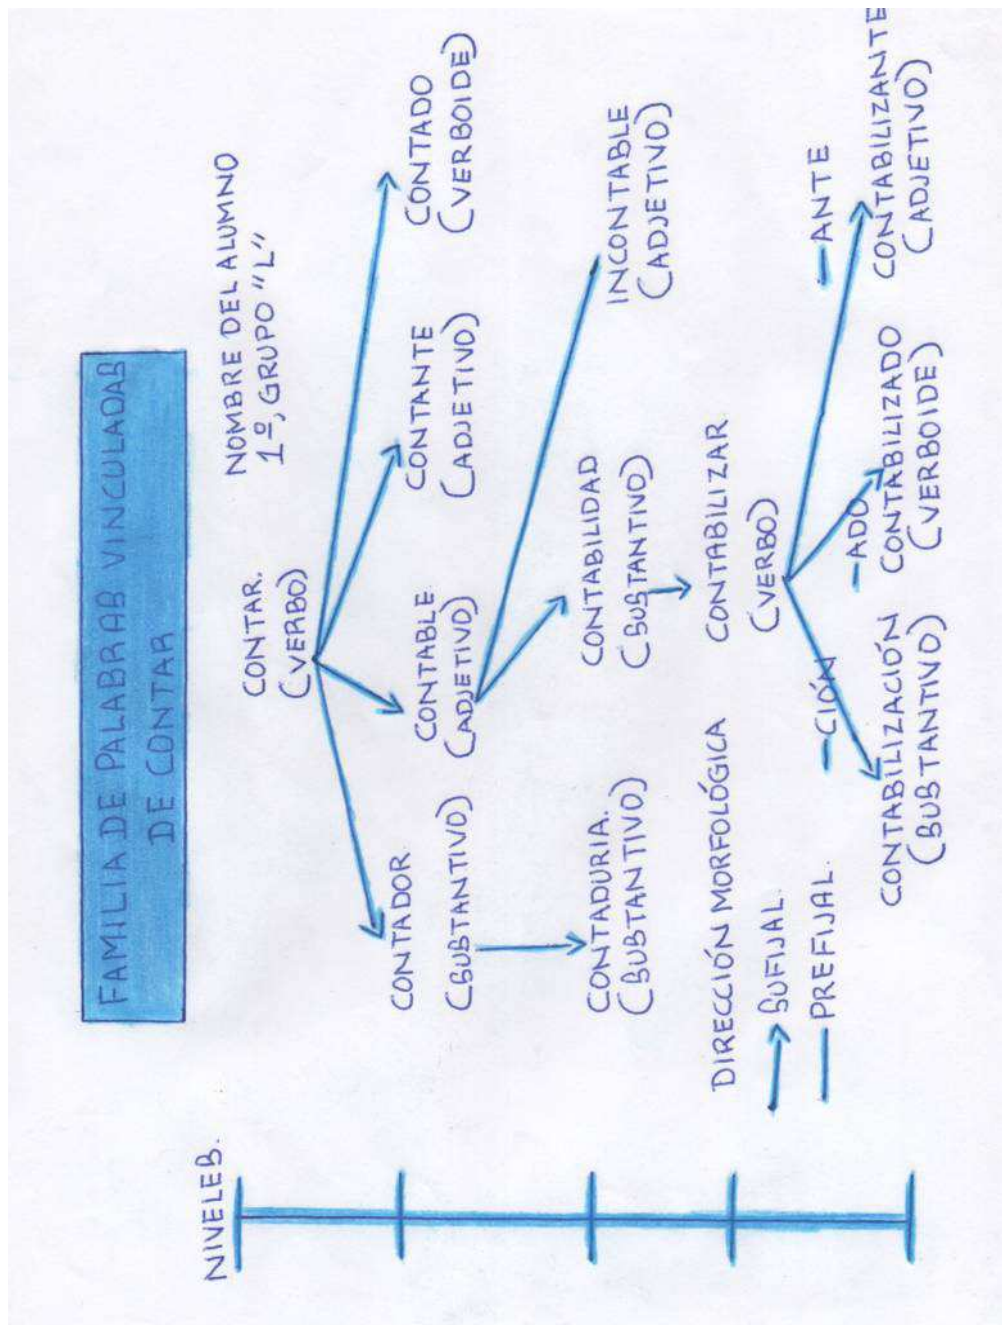 FAMILIA DE PALABRAS VINCULADAS
DE CONTAR
NOMBRE DEL ALUMNO
1º, GRUPO "L"
NIVELES.
CONTAR.
(VERBO)
CONTADOR
(SUBTANTIVO)
CONTABLE
(ADJETIVO)
CONTANTE
(ADJETIVO)
CONTADO
(VERBOIDE)
CONTADURIA.
(SUBTANTIVO)
CONTABILIDAD
(SUSTANTIVO)
INCONTABLE
(ADJETIVO)
DIRECCIÓN MORFOLÓGICA
SUFIJAL.
PREFIJAL.
CONTABILIZAR
(VERBO)
-CIÓN
-ADO
-ANTE
CONTABILIZACIÓN
(SUBTANTIVO)
CONTABILIZADO
(VERBOIDE)
CONTABILIZANTE
(ADJETIVO)